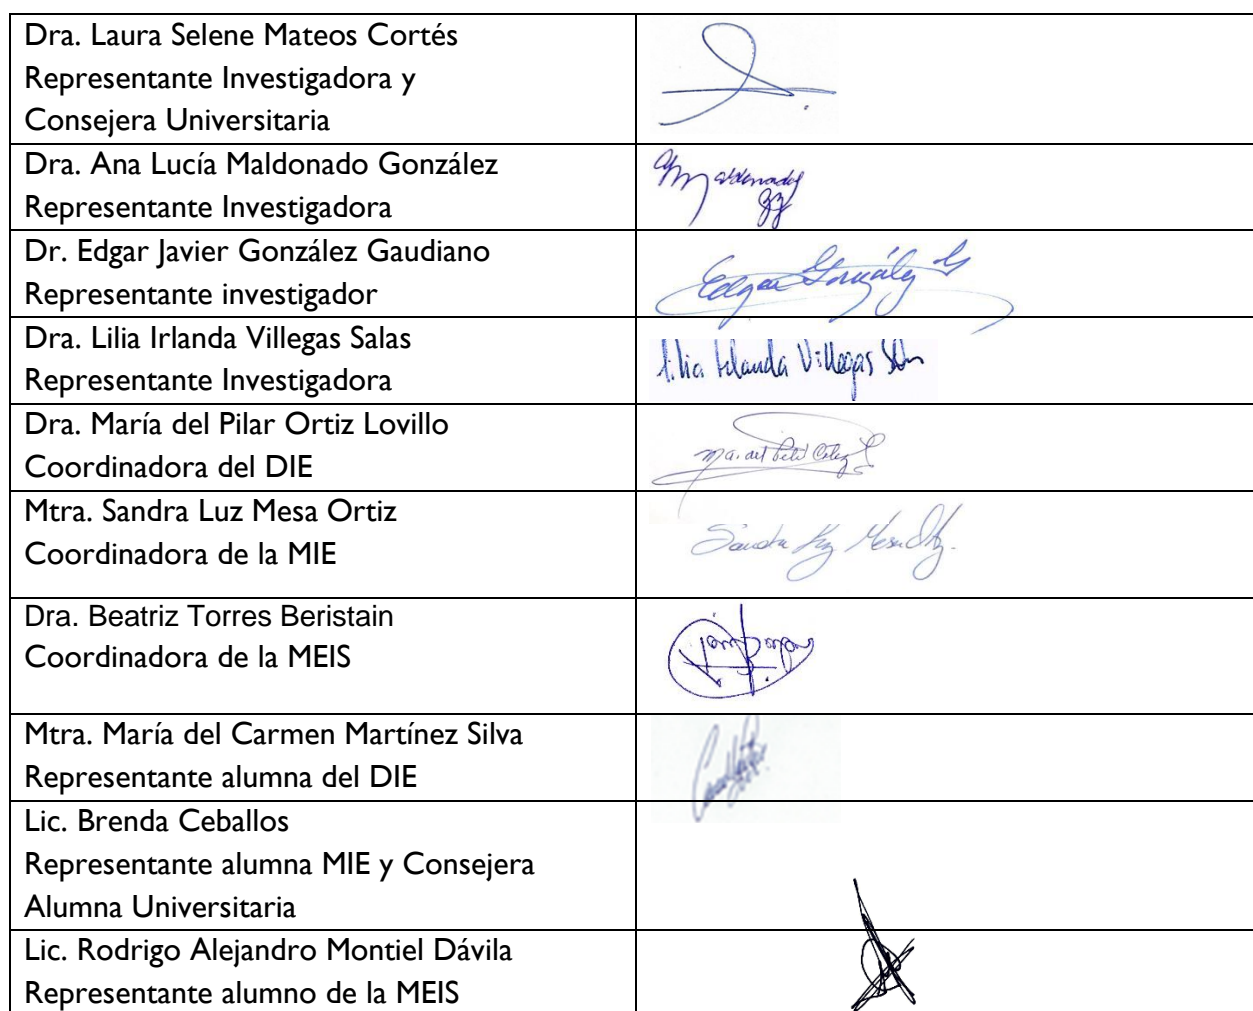 Dra. Laura Selene Mateos Cortés
Representante Investigadora y
Consejera Universitaria
Dra. Ana Lucía Maldonado González
Representante Investigadora
Maldonado
Dr. Edgar Javier González Gaudiano
Representante investigador
Edgar González G
Dra. Lilia Irlanda Villegas Salas
Representante Investigadora
Lilia Irlanda Villegas
Dra. María del Pilar Ortiz Lovillo
Coordinadora del DIE
Ma. del
Mtra. Sandra Luz Mesa Ortiz
Coordinadora de la MIE
Sandra Luz Mesa Ortiz
Dra. Beatriz Torres Beristain
Coordinadora de la MEIS
Mtra. María del Carmen Martínez Silva
Representante alumna del DIE
Lic. Brenda Ceballos
Representante alumna MIE y Consejera
Alumna Universitaria
Lic. Rodrigo Alejandro Montiel Dávila
Representante alumno de la MEIS